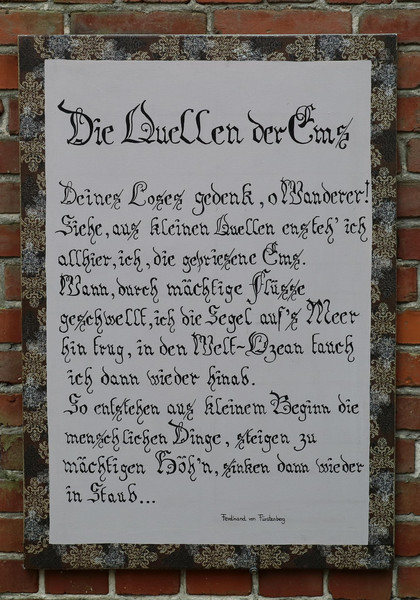 Die Quellen der Ems
Deines Loses gedenk, o Wanderer!
Siehe, aus kleinen Quellen ensteh' ich
allhier, ich, die gepriesene Ems.
Wann, durch mächtige Flüsse
geschwellt, ich die Segel auf's Meer
hin trug, in den Welt-Ozean tauch
ich dann wieder hinab.
So entstehen aus kleinem Beginn die
menschlichen Dinge, steigen zu
mächtigen Höh'n, sinken dann wieder
in Staub...
Ferdinand von Fürstenberg